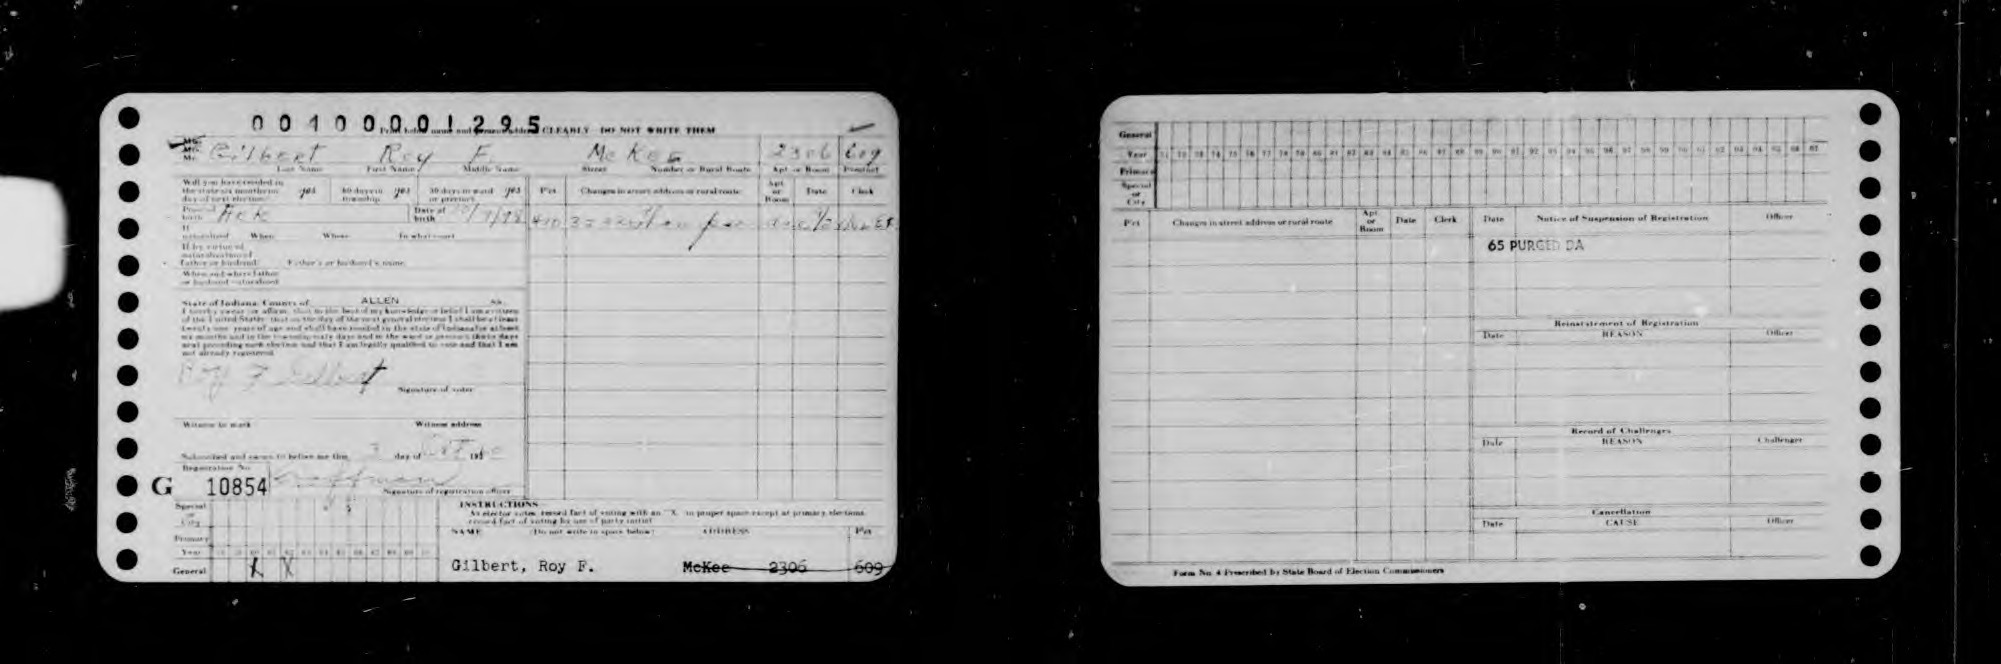 001000001295
Print below name and present address CLEARLY DO NOT WRITE THEM
Gilbert Roy F. McKee 2306 609
Last Name First Name Middle Name Street Number or Rural Route Apt or Room Precinct
Will you have resided in the state six months on day of next election? yes 60 days in township yes 30 days in ward or precinct yes
Pct Changes in street address or rural route Apt or Room Date Clerk
Place of birth Ark Date of birth
If naturalized When Where In what court
If by virtue of naturalization of Father or husband? Father's or husband's name
When and where father or husband naturalized
State of Indiana, County of ALLEN ss.
I hereby swear (or affirm) that to the best of my knowledge or belief I am a citizen
of the United States; that on the day of the next general election I shall be at least
twenty-one years of age and shall have resided in the state of Indiana for at least
six months and in the township sixty days and in the ward or precinct thirty days
next preceding such election and that I am legally qualified to vote and that I am
not already registered
Roy F Gilbert
Signature of voter
Witness to mark Witness address
Subscribed and sworn to before me this day of Oct 19
Registration No.
G 10854
Signature of registration officer
Special or City
Primary
Year
General X X
INSTRUCTIONS
As elector votes, record fact of voting with an "X" in proper space except at primary elections
record fact of voting by use of party initial
NAME (Do not write in space below) ADDRESS Pct
Gilbert, Roy F. McKee 2306 609
General
Year 71 72 73 74 75 76 77 78 79 80 81 82 83 84 85 86 87 88 89 90 91 92 93 94 95 96 97 98 99 00 01 02 03 04 05 06 07
Primary
Special or City
Pct Changes in street address or rural route Apt or Room Date Clerk
Date Notice of Suspension of Registration Officer
65 PURGED DA
Reinstatement of Registration
Date REASON Officer
Record of Challenges
Date REASON Challenger
Cancellation
Date CAUSE Officer
Form No. 4 Prescribed by State Board of Election Commissioners